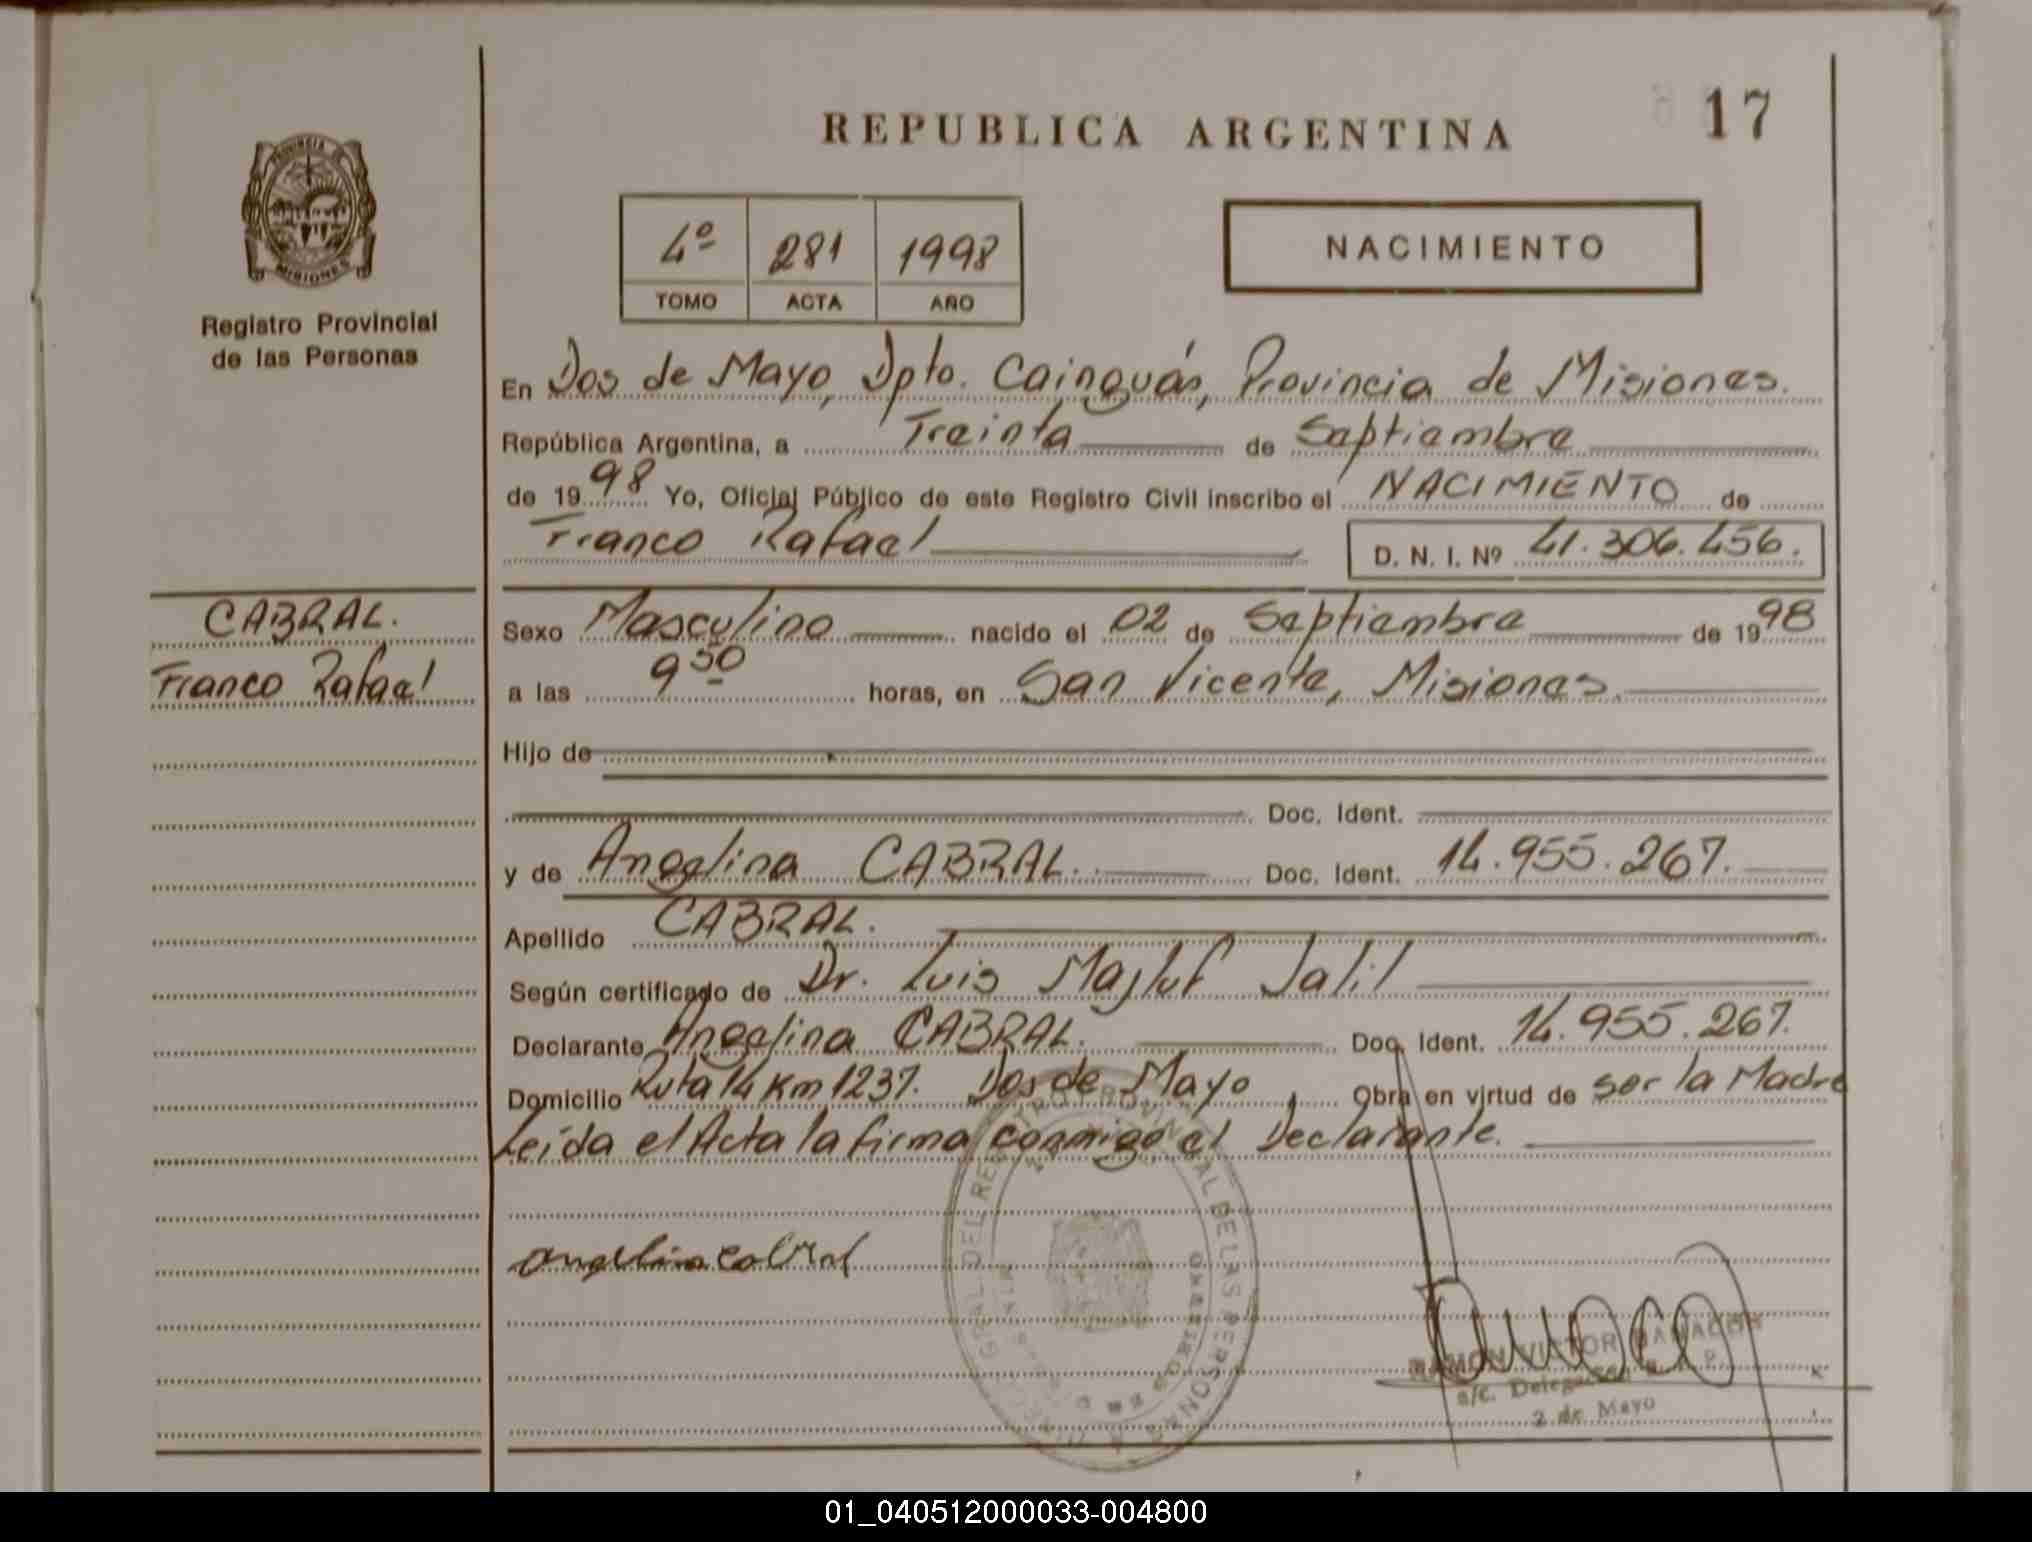 REPUBLICA ARGENTINA
17
PROVINCIA DE
MISIONES
Registro Provincial
de las Personas
4º 281 1998
TOMO ACTA AÑO
NACIMIENTO
En Dos de Mayo, Dpto. Cainguás, Provincia de Misiones.
República Argentina, a Treinta de Septiembre
de 1998 Yo, Oficial Público de este Registro Civil inscribo el NACIMIENTO de
Franco Rafael D. N. I. Nº 41.306.456.
CABRAL.
Franco Rafael
Sexo Masculino nacido el 02 de Septiembre de 1998
a las 9 50 horas, en San Vicente, Misiones.
Hijo de
Doc. Ident.
y de Angelina CABRAL. Doc. Ident. 14.955.267.
Apellido CABRAL.
Según certificado de Dr. Luis Majluf Jalil
Declarante Angelina CABRAL. Doc. Ident. 14.955.267.
Domicilio Ruta 14 Km 1237. Dos de Mayo, Obra en virtud de ser la Madre
Leída el Acta la firma conmigo el Declarante.
angelina cabral
RAMON VICTOR
s/c. Delegacion
2 de Mayo
01_040512000033-004800